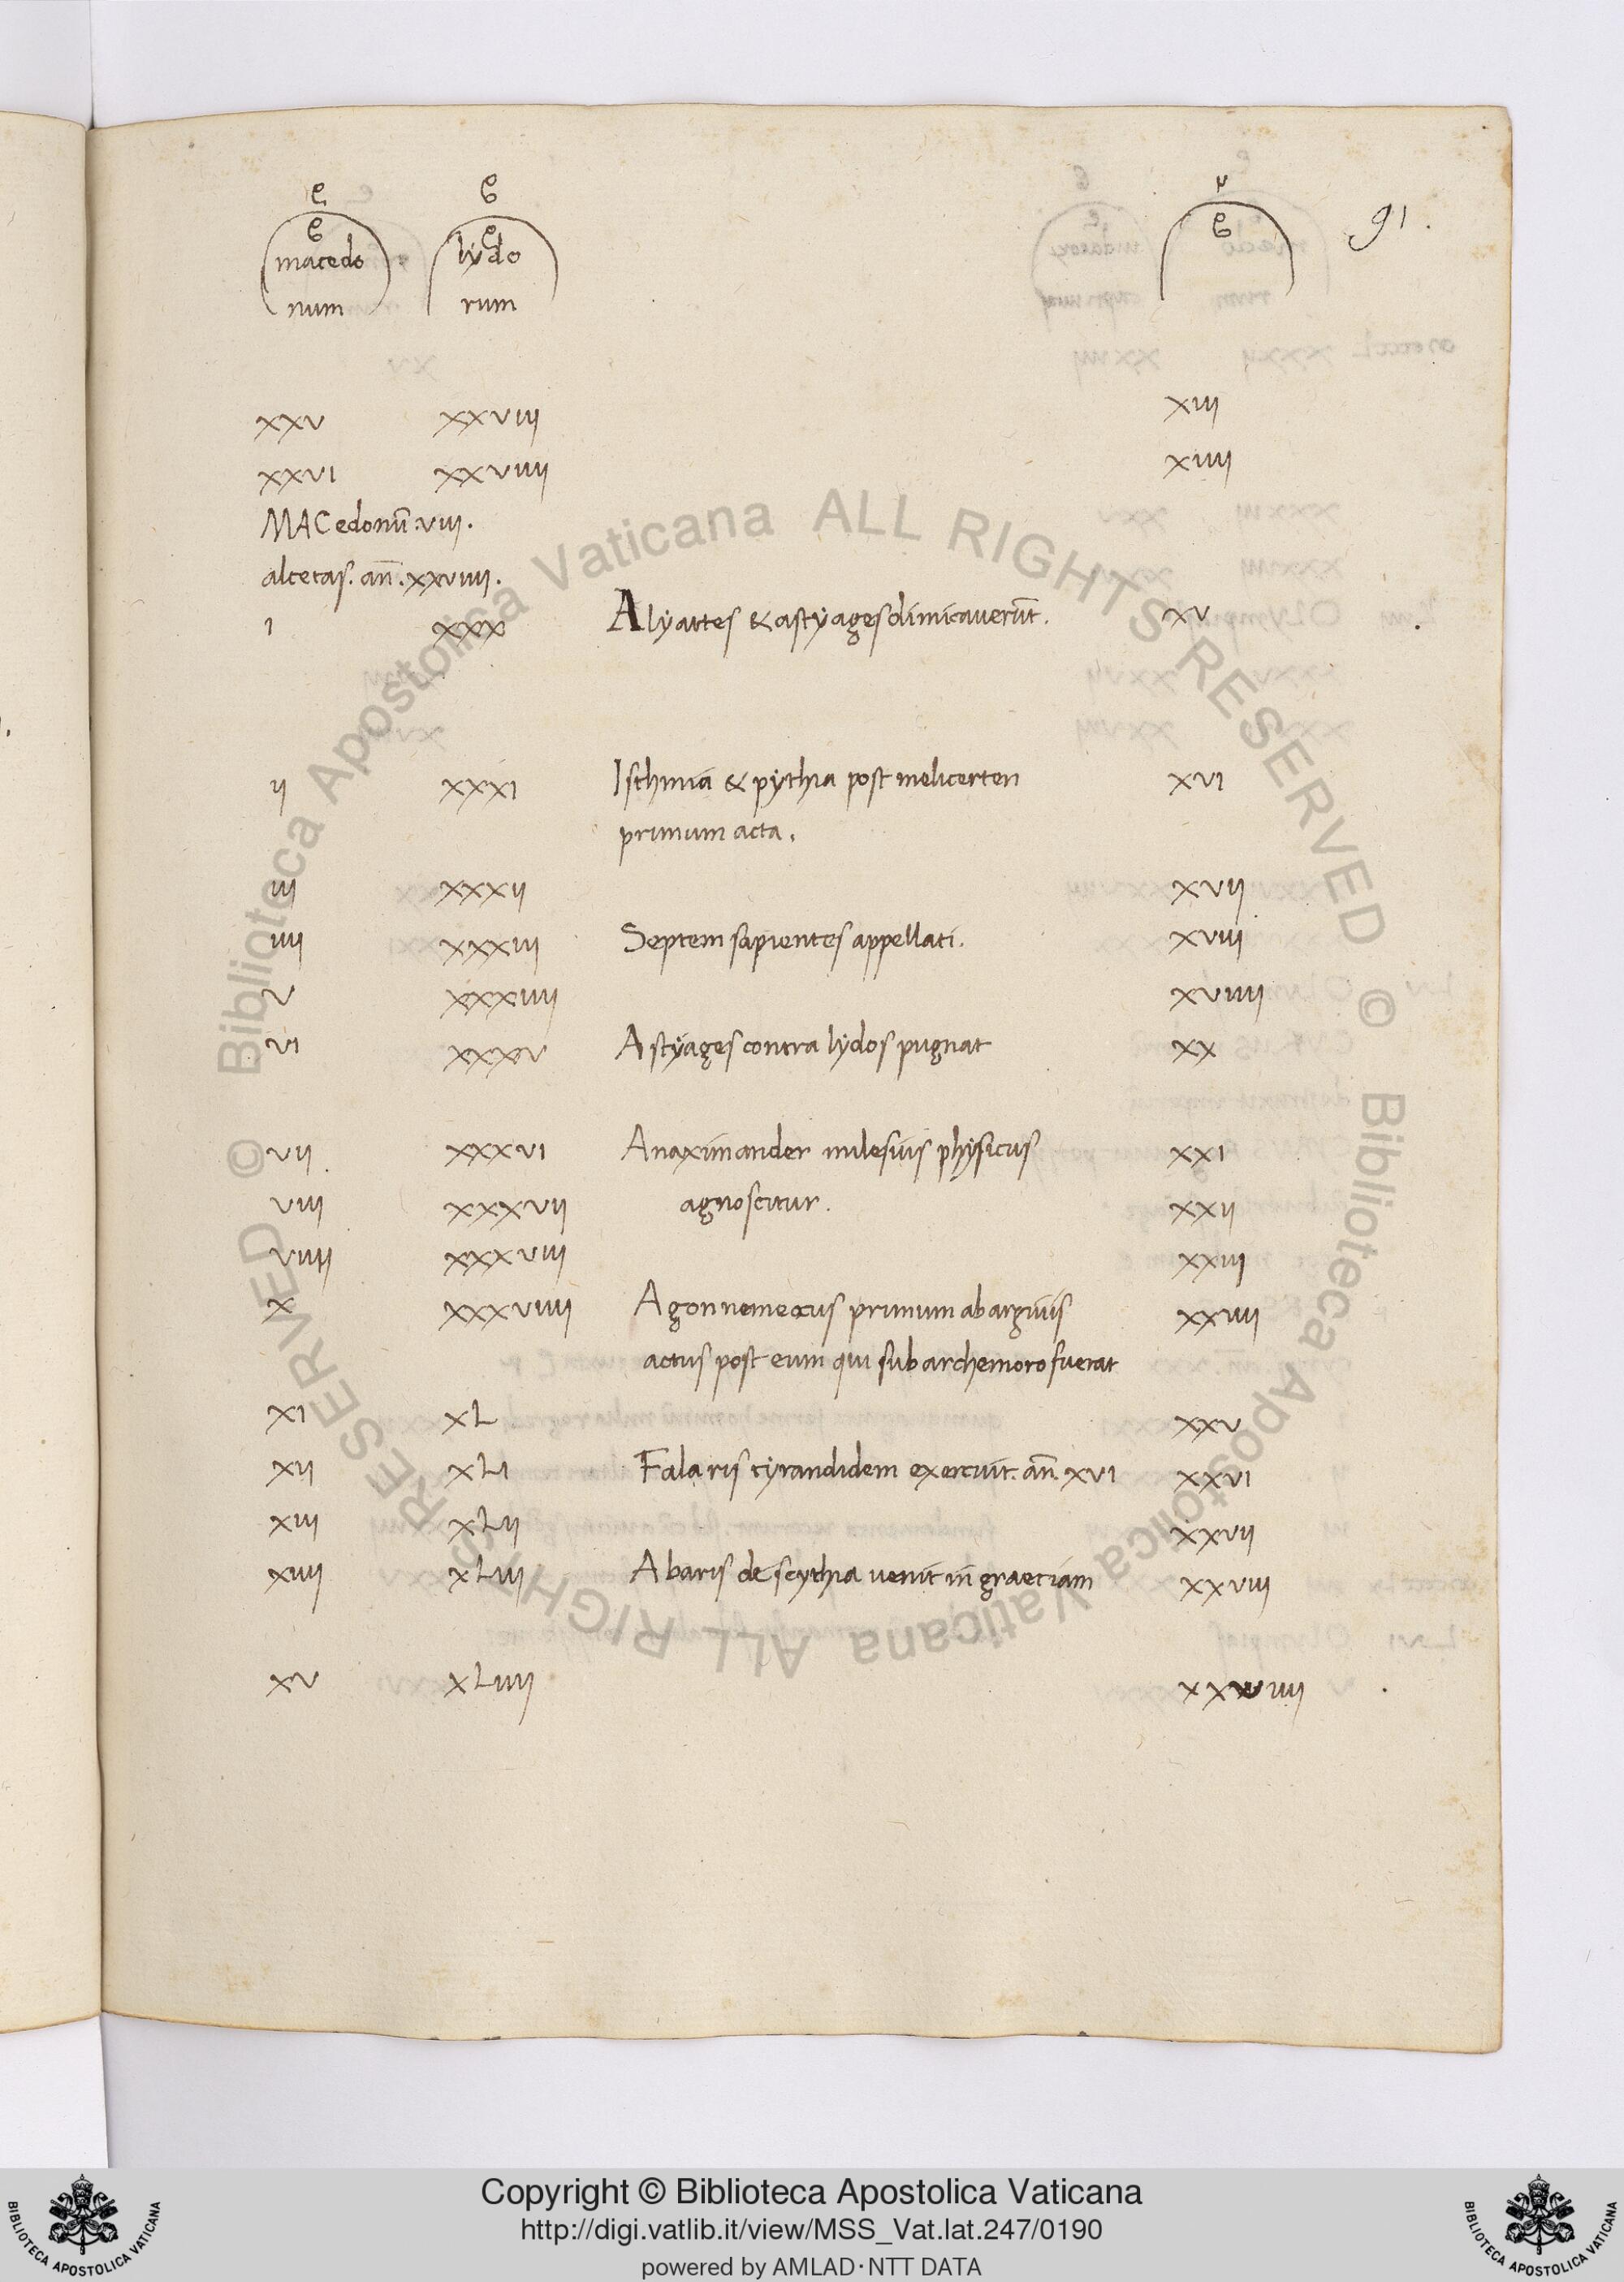 91.
macedo lydo
num rum
xxv xxviii xiii
xxvi xxviiii xiiii
MACedonū. viii.
alcetas. an̄. xxviiii.
i xxx Alyattes & astyages dimicauerūt. xv
ii xxxi Isthmia & pythia post melicerten xvi
primum acta.
iii xxxii xvii
iiii xxxiii Septem sapientes appellati. xviii
v xxxiiii xviiii
vi xxxv Astyages contra lydos pugnat xx
vii xxxvi Anaximander milesius physicus xxi
viii xxxvii agnoscitur. xxii
viiii xxxviii xxiii
x xxxviiii Agon nemeacus primum ab argiuis xxiiii
actus post eum qui sub archemoro fuerat
xi xL xxv
xii xLi Falaris tyrandidem exercuit. an̄. xvi xxvi
xiii xLii xxvii
xiiii xLiii Abaris de scythia uenit in graeciam xxviii
xv xLiiii
Copyright © Biblioteca Apostolica Vaticana
http://digi.vatlib.it/view/MSS_Vat.lat.247/0190
powered by AMLAD·NTT DATA
BIBLIOTECA APOSTOLICA VATICANA
BIBLIOTECA APOSTOLICA VATICANA
© Biblioteca Apostolica Vaticana ALL RIGHTS RESERVED
© Biblioteca Apostolica Vaticana ALL RIGHTS RESERVED